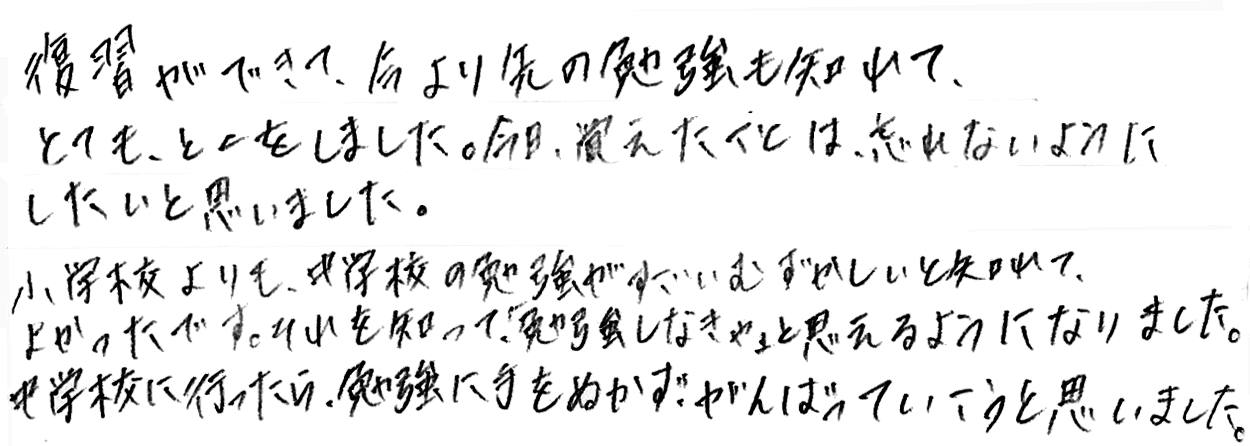 復習ができて、今より先の勉強も知れて、
とても、とくをしました。今日、覚えたことは、忘れないように
したいと思いました。
小学校よりも、中学校の勉強がすごいむずかしいと知れて、
よかったです。それを知って、「勉強しなきゃ」と思えるようになりました。
中学校に行ったら、勉強に手をぬかず、がんばっていこうと思いました。